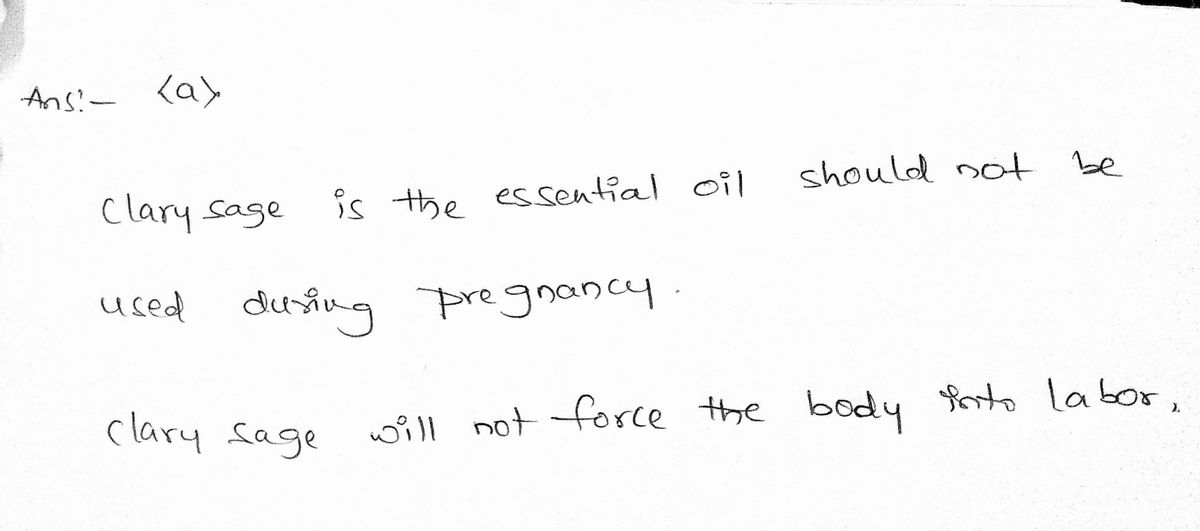 Ans:- <a>.
Clary sage is the essential oil should not be
used during pregnancy.
Clary sage will not force the body into labor,